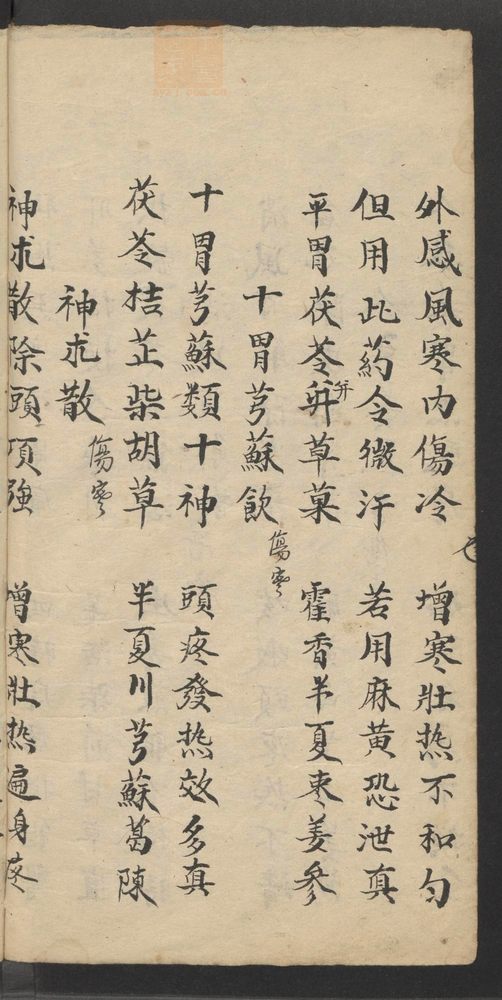 外感風寒内傷冷　增寒壯热不和勻
但用此葯令微汗　若用麻黄恐泄真
平胃茯苓并草菓　霍香半夏枣姜參
十胃芎蘇飲　傷寒
十胃芎蘇類十神　頭疼發热效多真
茯苓桔芷柴胡草　半夏川芎蘇葛陳
神朮散　傷寒
神朮散除頭項強　增寒壯热遍身疼